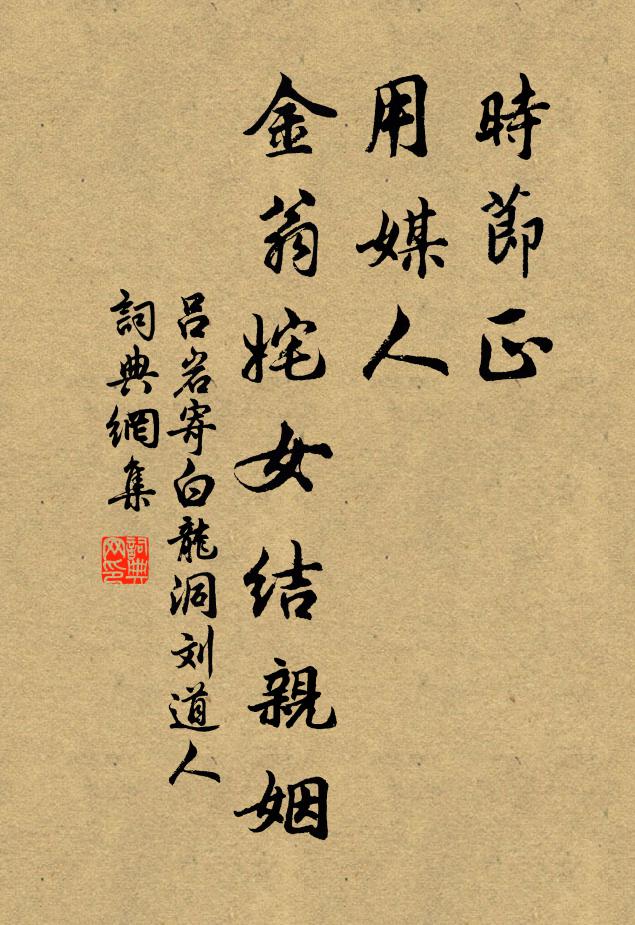 時節正
用媒人
金翁姹女結親姻
吕岩寄白龍洞刘道人
詞典網集
詞典网印